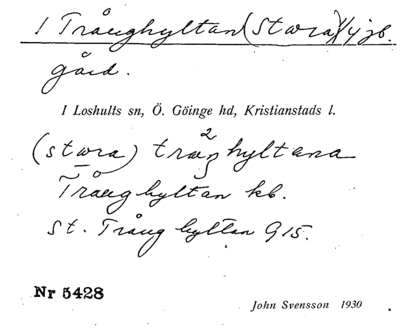 1 Trånghyltan (Stora) 1/4 jb.
gård.
I Loshults sn, Ö. Göinge hd, Kristianstads l.
(stora) trånghyltana
Trånghyltan kb.
St. Trånghyltan G15.
Nr 5428
John Svensson 1930